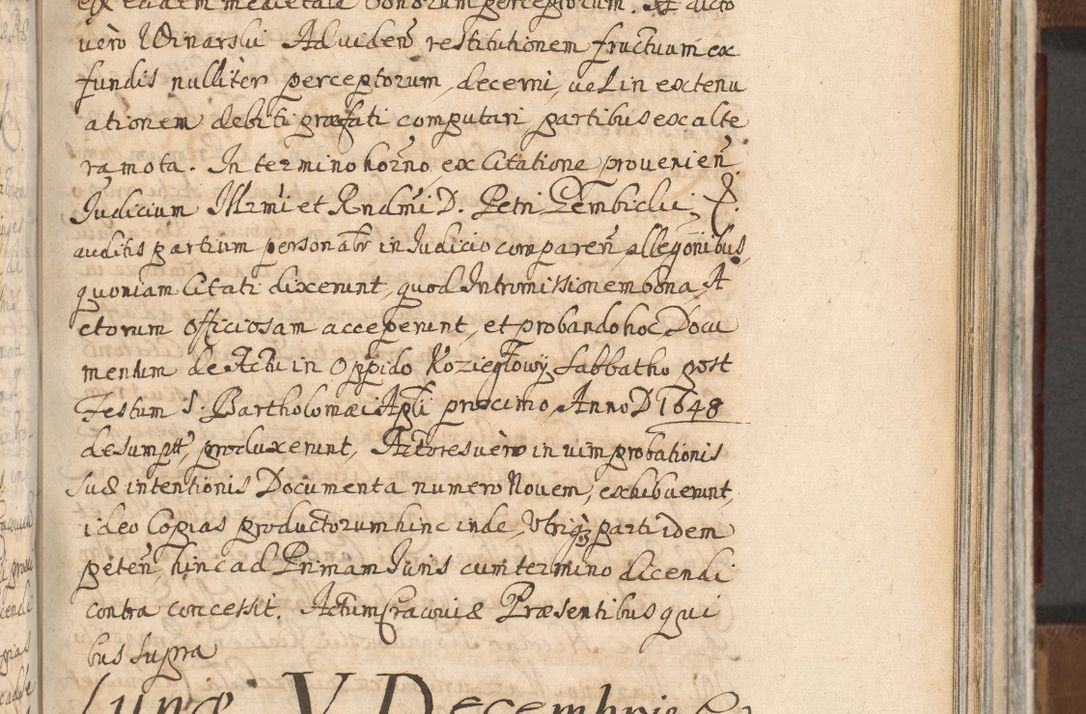 ex eadem medietate bonorum perceptorum. Et dicto
uero Winarski Ad uiden̄ restitutionem fructuum ex
fundis nulliter perceptorum, decerni, uel in extenu
ationem debiti præfati computari partibus ex alte
ra mota. In termino horn̄o ex Citatione prouenien̄
Judicium Illr̄mi et Rndm̄i D. Petri Gembicki,
auditis partium personalr̄ in Judicio comparen̄ allegōnibus,
quoniam Citati dixerunt, quod Intromissionem bona A
ctorum officiosam acceperunt, et probando hoc Docu
mentum de Actu in Oppido Koziegłowy Sabbatho post
Festum S. Bartholomæi Apli proximo Anno D 1648
desumptt, produxerunt, Actores uero in uim probationis
suæ intentionis Documenta numero Nouem, exhibuerunt,
ideo Copias productorum hinc inde, Utriq3 parti idem
peten̄, hinc ad Primam Juris cum termino dicendi
contra concessit. Actum Cracouiæ Præsentibus qui
bus supra
Lunæ V Decembris